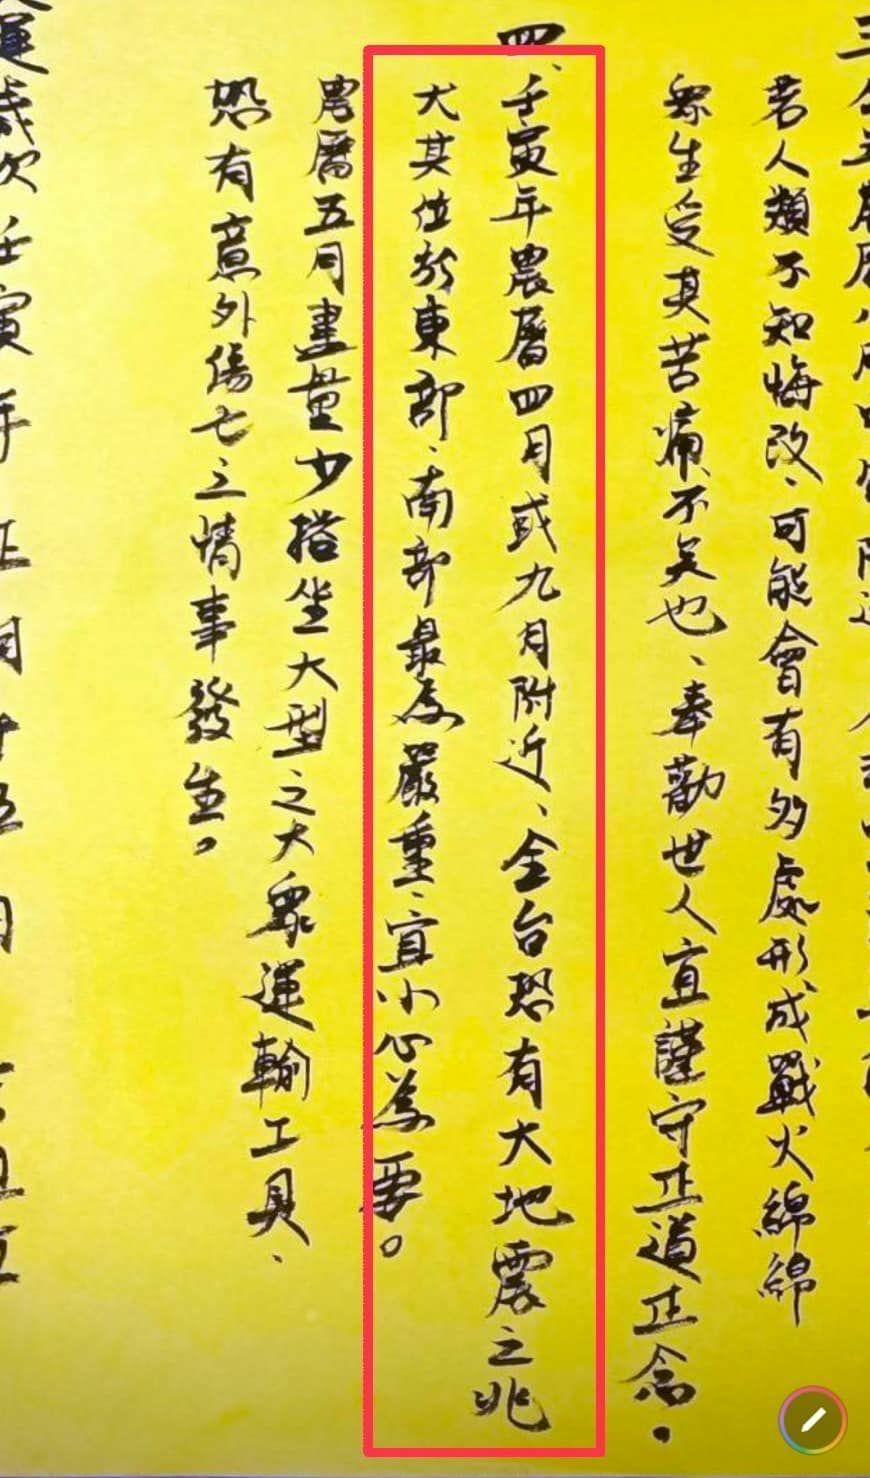 三
若人類不知悔改、可能會有多處形成戰火綿綿
眾生受其苦痛不矣也、奉勸世人宜謹守正道正念。
四、壬寅年農曆四月或九月附近、全台恐有大地震之兆
尤其位於東部、南部最為嚴重、宜小心為要。
農曆五月盡量少搭坐大型之大眾運輸工具、
恐有意外傷亡之情事發生。
運歲次壬寅年正月十五日